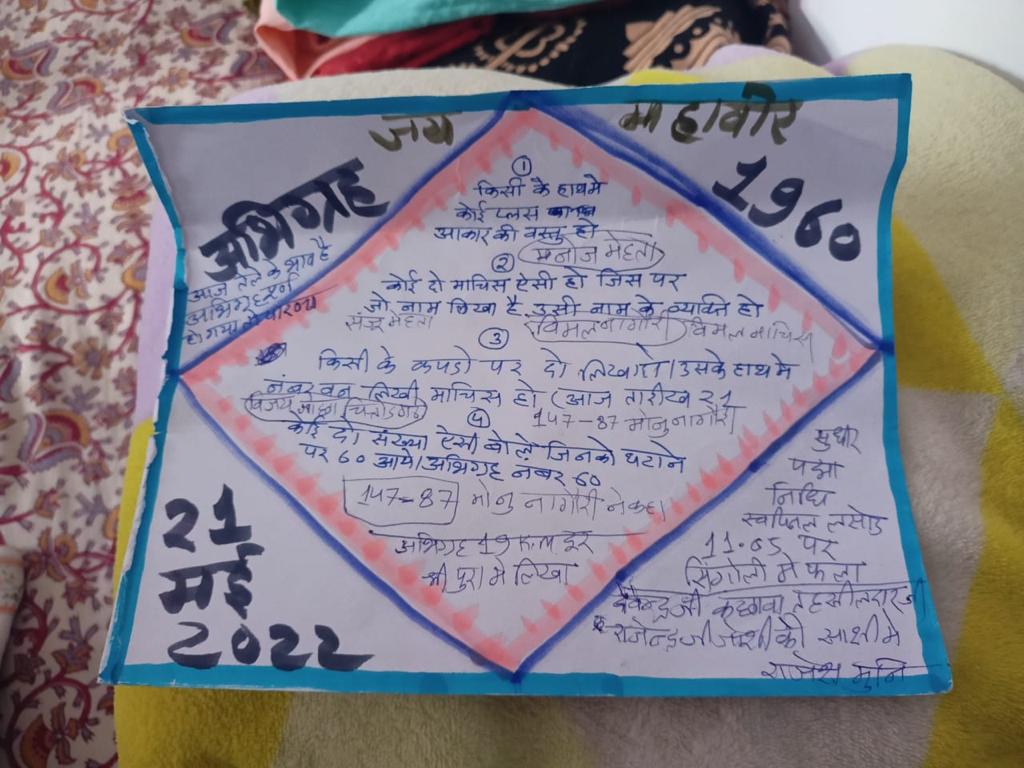 जय महावीर
अभिग्रह
1960
आज तेले के भाव है
अभिग्रह पूर्ण
हो गया तो पारणा
①
किसी के हाथ मे
कोई प्लस
आकार की वस्तु हो
मनोज मेहता
②
कोई दो माचिस ऐसी हो जिस पर
जो नाम लिखा है उसी नाम के व्यक्ति हो
मेहता विमल नागोरी विमल माचिस
③
किसी के कपडो पर दो लिखा हो। उसके हाथ मे
नंबर वन लिखी माचिस हो (आज तारीख 21
विजय चित्तौडगढ 147-87 मोनु नागोरी
④
कोई दो संख्या ऐसी बोले जिनको घटाने
पर 60 आये। अभिग्रह नंबर 60
147-87 मोनु नागौरी ने कहा
अभिग्रह 19 कि.मी दूर
श्री पुरा मे लिखा
21
मई
2022
सुधीर
पद्मा
निधि
स्वपनिल लसोड
11.05 पर
सिंगोली मे फला
देवेन्द्र जी कछावा तहसीलदार जी
राजेन्द्र जी जोशी की साक्षी मे
राजेश मुनि